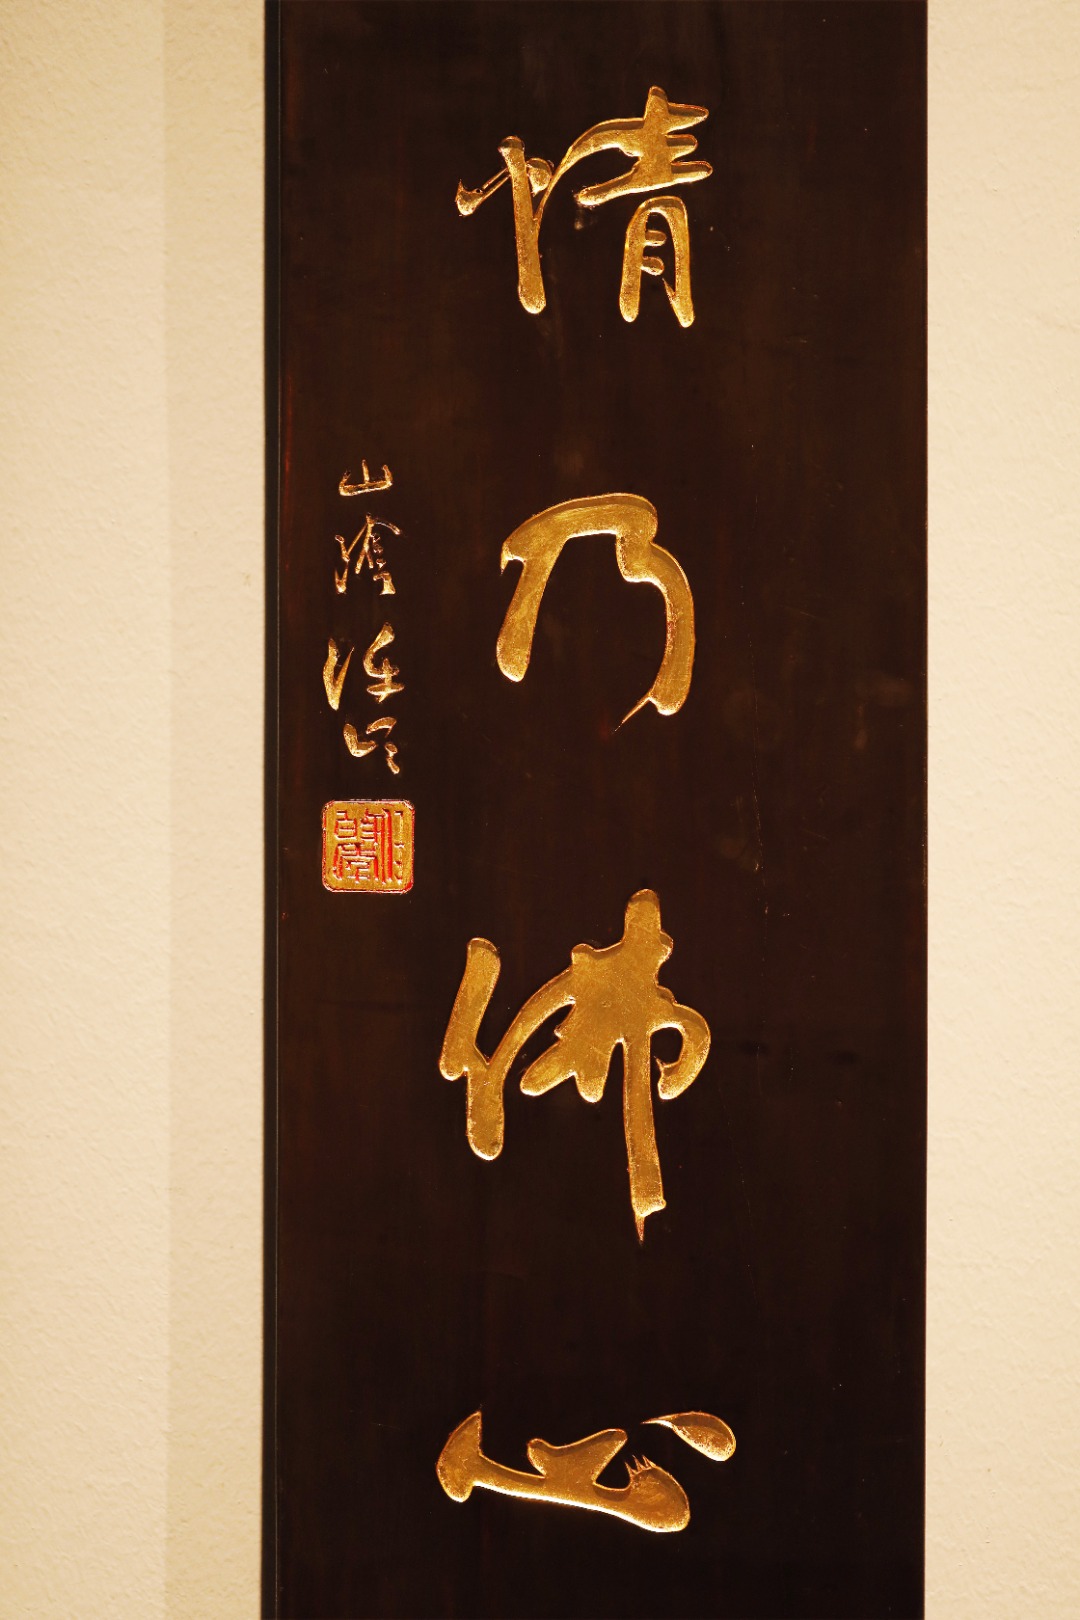 情乃佛心
山陰